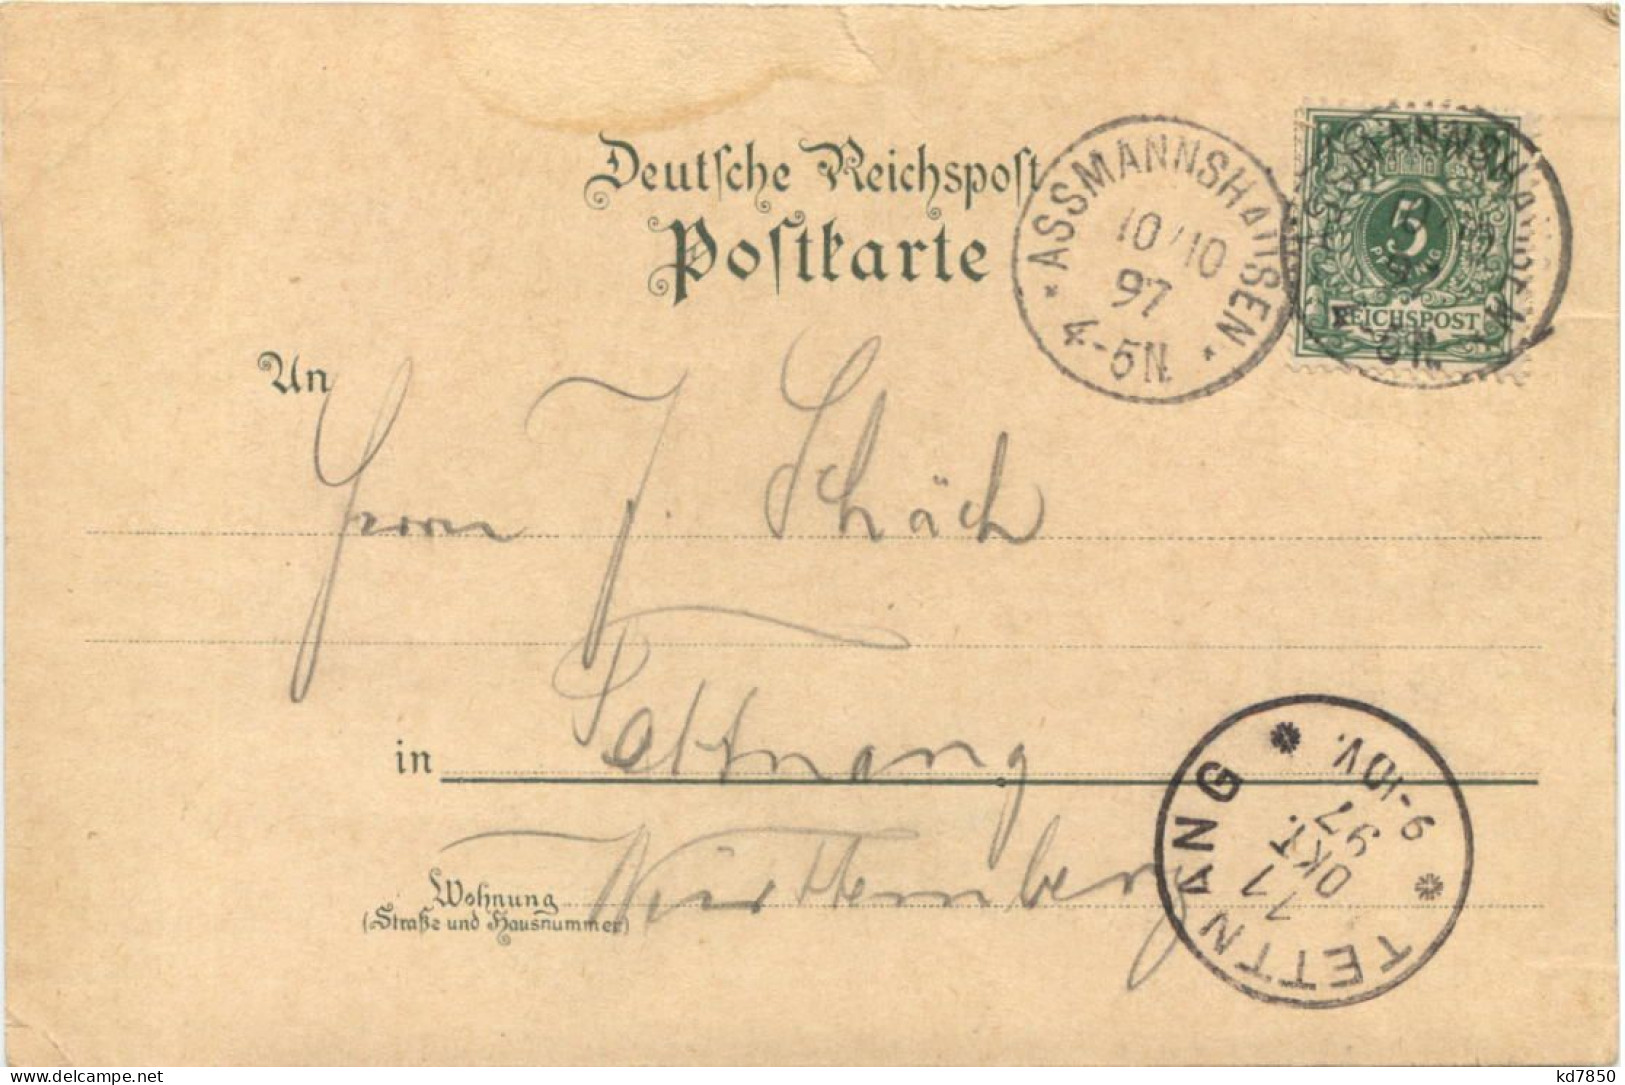 Deutsche Reichspost
Postkarte
ASSMANNSHAUSEN
10/10
97
4-5N.
ASSMANNSHAUSEN
5
PFENNIG
REICHSPOST
An Herrn J. Schäch
in Tettnang
Wohnung Württemberg
(Straße und Hausnummer)
TETTNANG
11
OKT.
97
9-10V.
kd7850